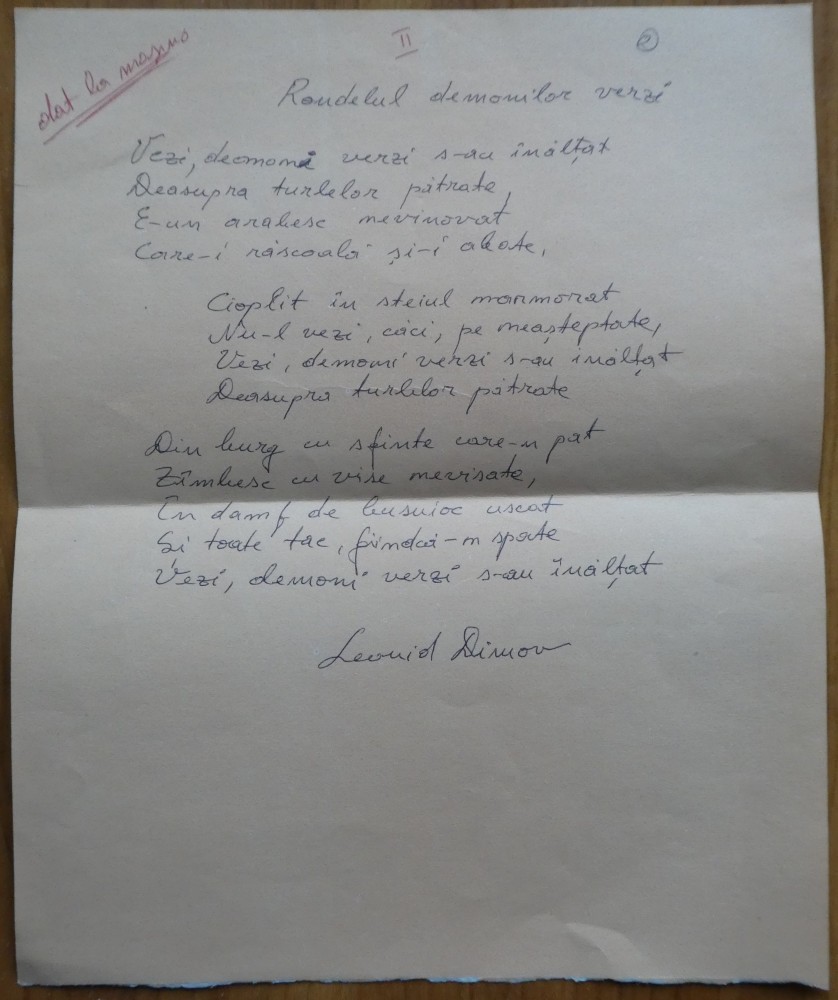 dat la mașină
II
2
Rondelul demonilor verzi
Vezi, deomoni verzi s-au înălțat
Deasupra turlelor pătrate,
E-un arabesc nevinovat
Care-i răscoală și-i abate,
Cioplit în steiul marmorat
Nu-l vezi, căci, pe neașteptate,
Vezi, demoni verzi s-au înălțat
Deasupra turlelor pătrate
Din burg cu sfinte care-n pat
Zîmbesc cu vise nevisate,
În damf de busuioc uscat
Și toate tac, fiindcă-n spate
Vezi, demoni verzi s-au înălțat
Leonid Dimov